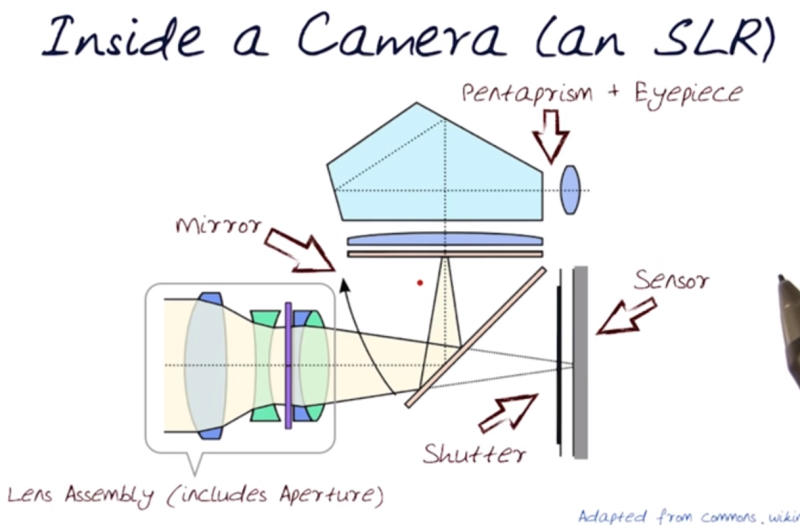 Inside a Camera (an SLR)
Pentaprism + Eyepiece
Mirror
Sensor
Shutter
Lens Assembly (includes Aperture)
Adapted from commons.wikim